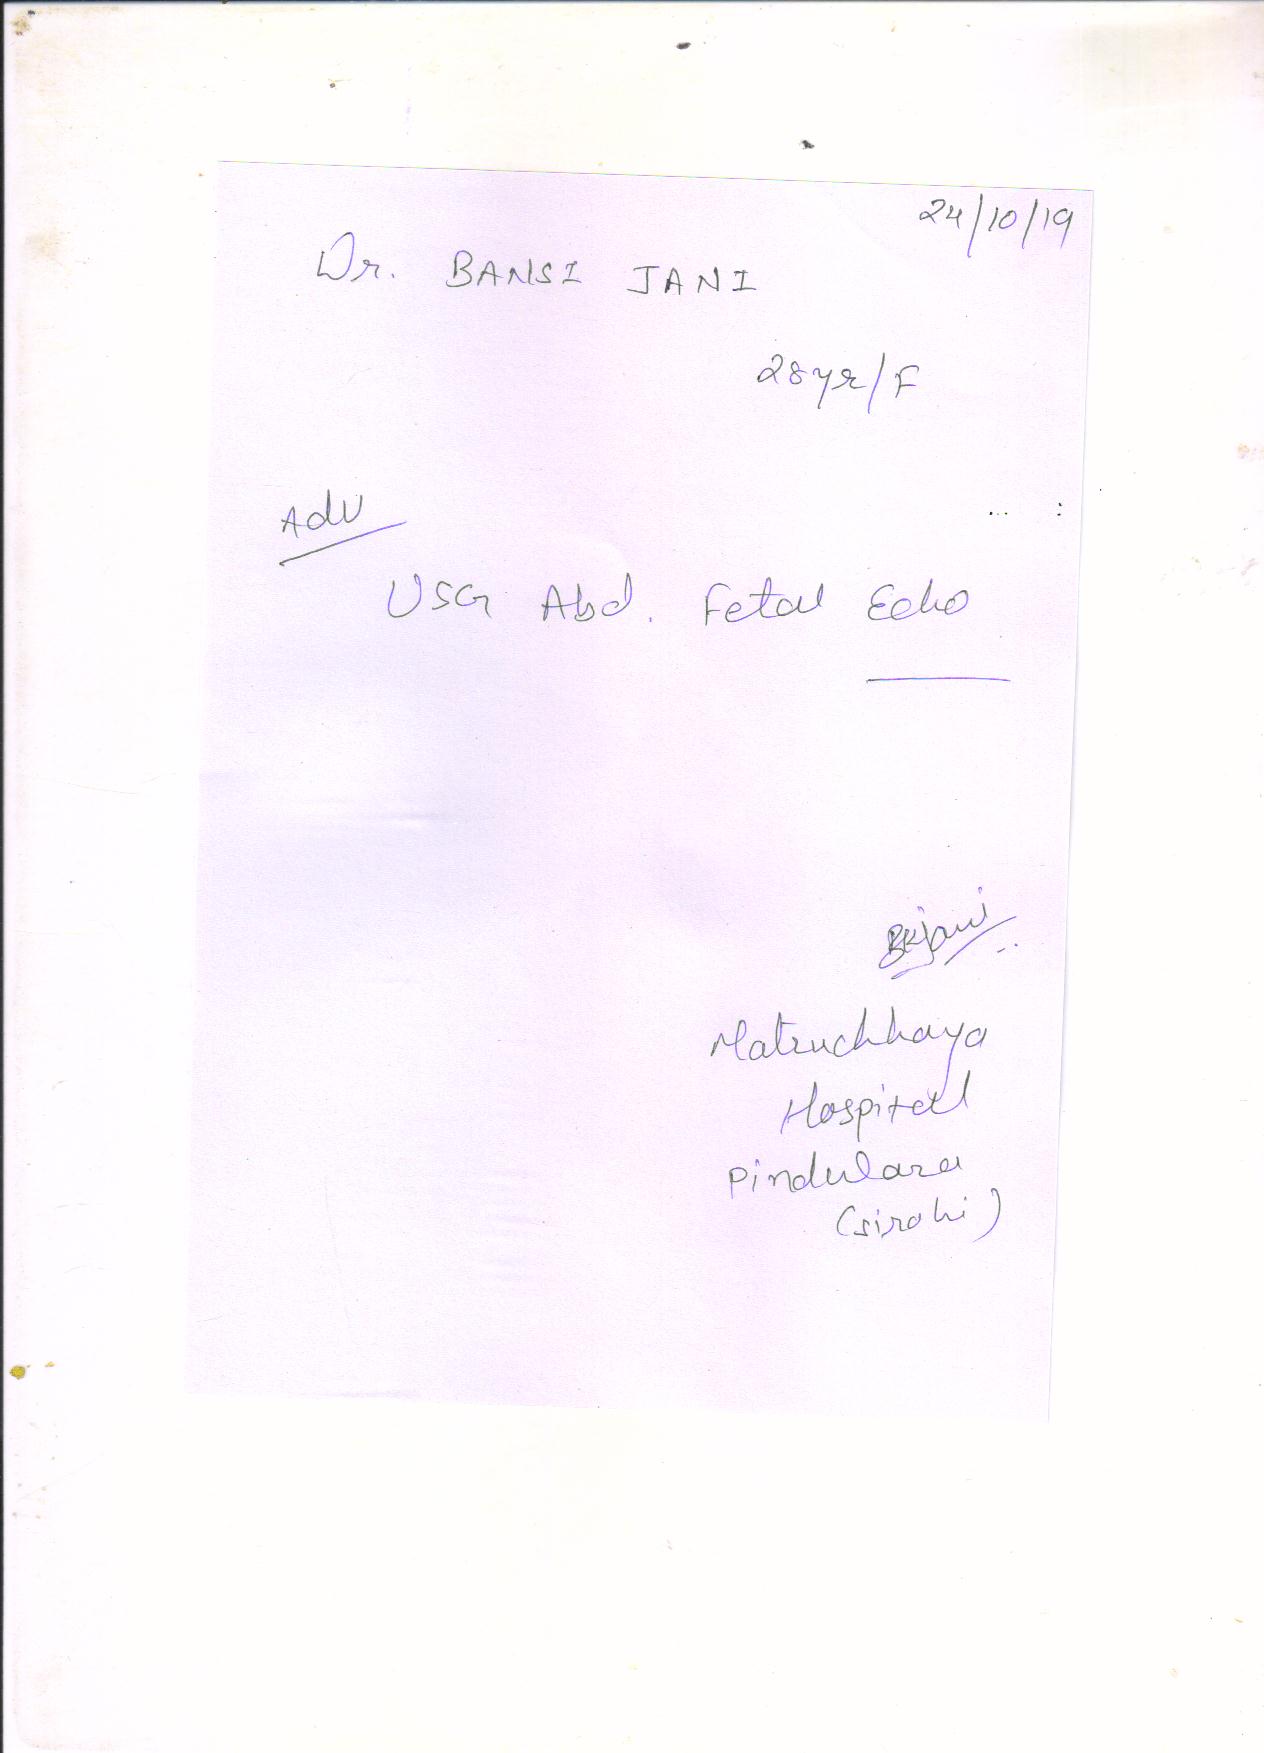 24/10/19
Dr. BANSI JANI
28yr/F
Adv
USG Abd. Fetal Echo
BKjani
Matruchhaya
Hospital
Pindwara
(sirohi)